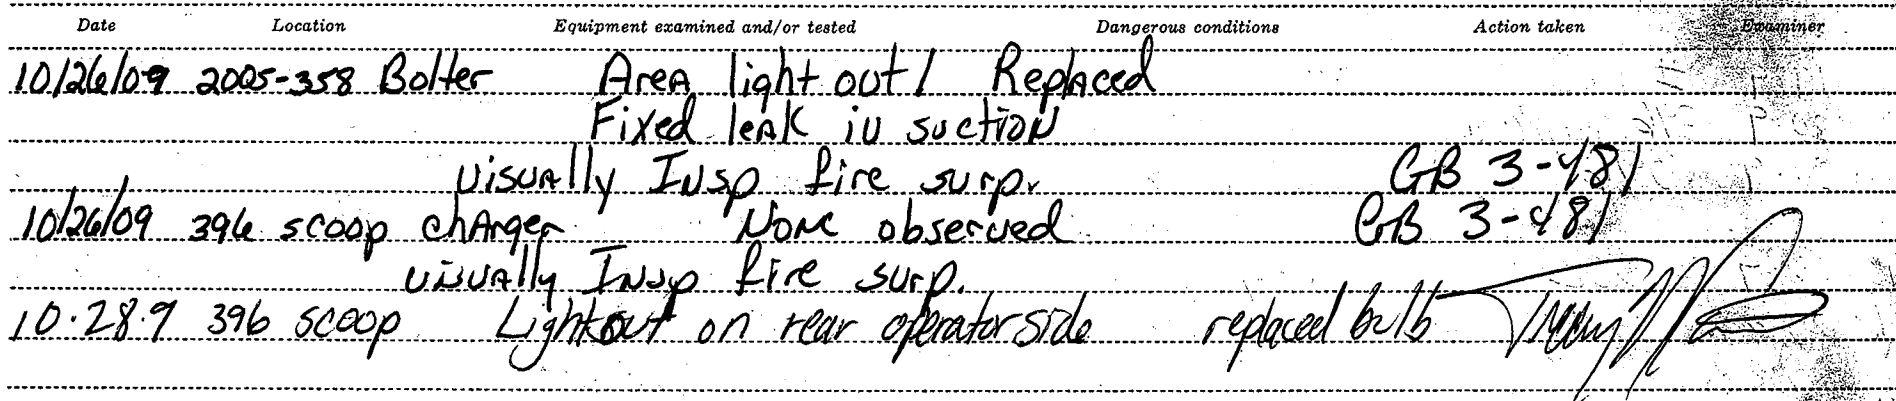 Date Location Equipment examined and/or tested Dangerous conditions Action taken Examiner
10/26/09 2005-358 Bolter Area light out / Replaced
Fixed leak in suction
Visually Insp fire surp. GB 3-481
10/26/09 396 scoop charger None observed GB 3-481
Visually Insp fire surp.
10.28.9 396 scoop Light out on rear operator side replaced bulb